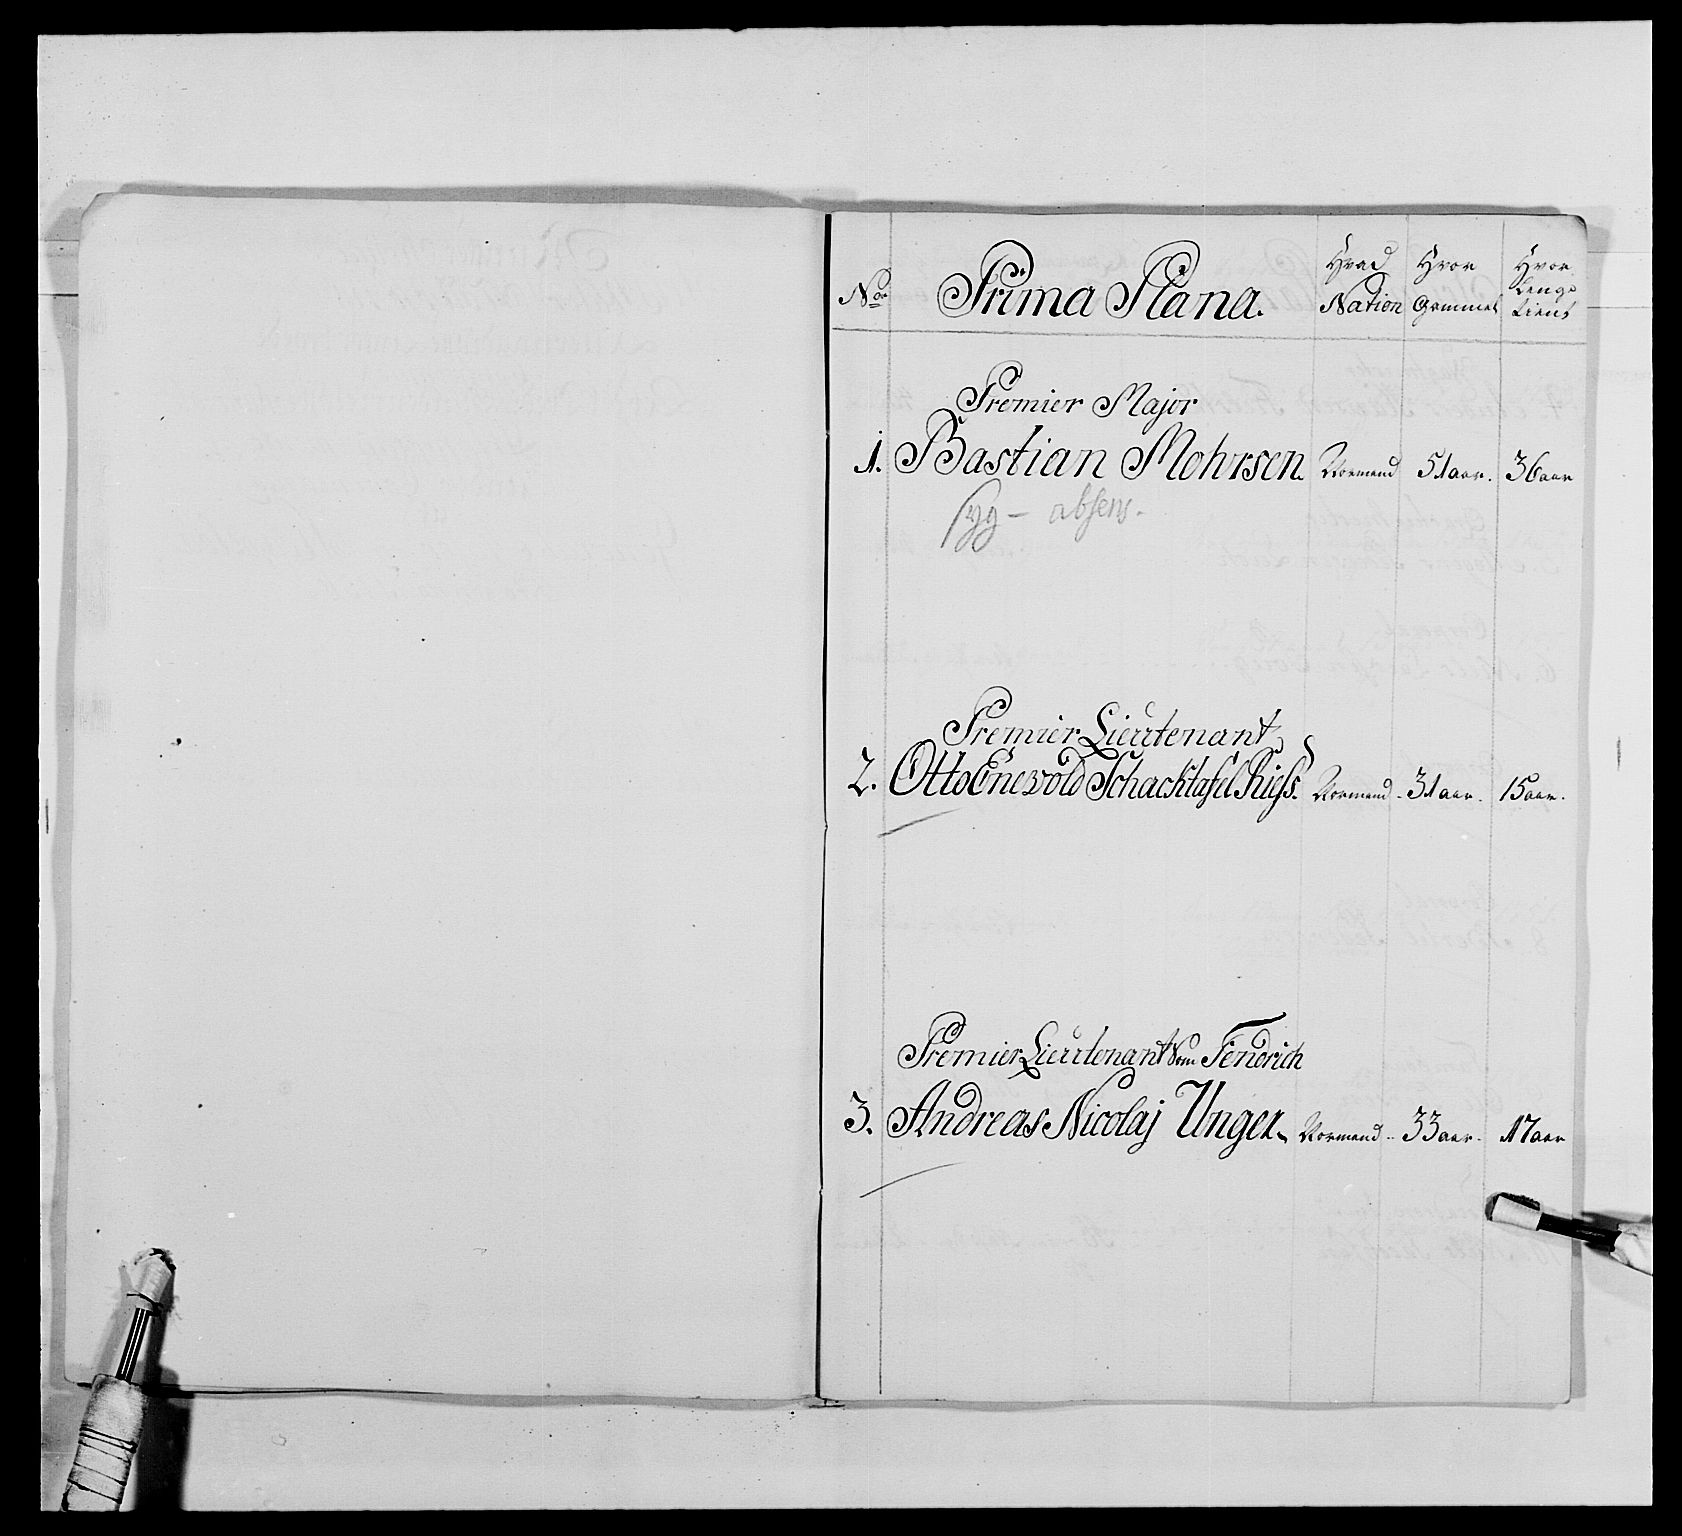 No Prima Plana. Hvad Nation Hvor Gammel Hvor Lenge Tient
Premier Major
1. Bastian Mohrsen. Normand 51 aar. 36 aar
syg - absens.
Premier Lieutenant
2. Otto Enevold Schacktafel Riess. Normand - 31 aar. 15 aar.
Premier Lieutenant Som Fendrich
3. Andreas Nicolaj Unger. Normand - 33 aar. 17 aar